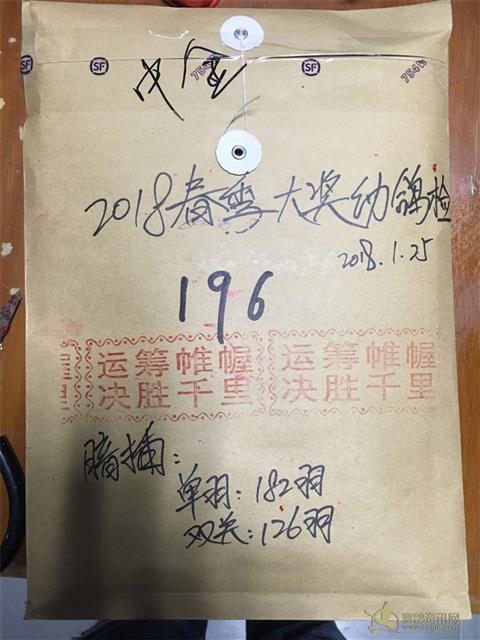 SF SF SF
754W 754W
2018春季大奖幼鸽检
2018.1.25
196
运筹帷幄 运筹帷幄
决胜千里 决胜千里
暗插：
单羽：182羽
双关：126羽
赛鸽资讯网